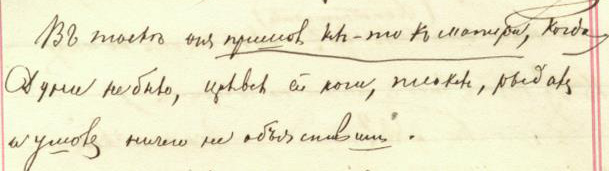 Въ тоскѣ онъ пришолъ какъ-то къ матери, когда
Дуни не было, цѣловалъ ей ноги, плакалъ, рыдалъ
и ушолъ ничего не объяснивши.